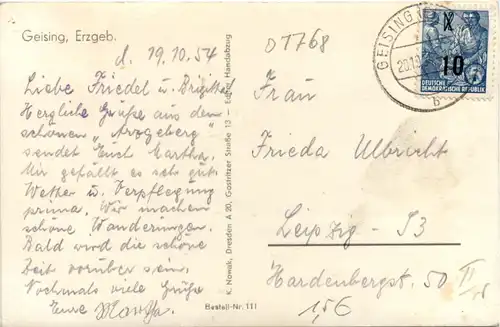 Geising, Erzgeb.
d. 19.10.54
Liebe Friedel u. Brigitte
Herzliche Grüße aus dem
schönen „Arzgeberg"
sendet Euch Martha.
Mir gefällt es sehr gut.
Wetter u. Verpflegung
prima. Wir machen
schöne Wanderungen.
Bald wird die schöne
Zeit vorüber sein.
Nochmals viele Grüße
Eure Martha.
K. Nowak, Dresden A 20, Gostritzer Straße 13 - Echter Handabzug
Bestell-Nr. 111
DT768
Frau
Frieda Ulbricht
Leipzig - S3
Hardenbergst. 50 II
1,56
GEISING
b
10
DEUTSCHE
DEMOKRATISCHE REPUBLIK